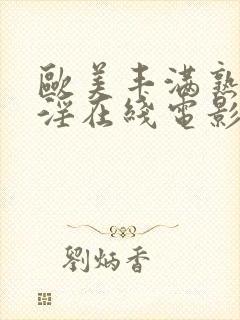 歐美丰滿熟
淫在綫電影
劉炳香